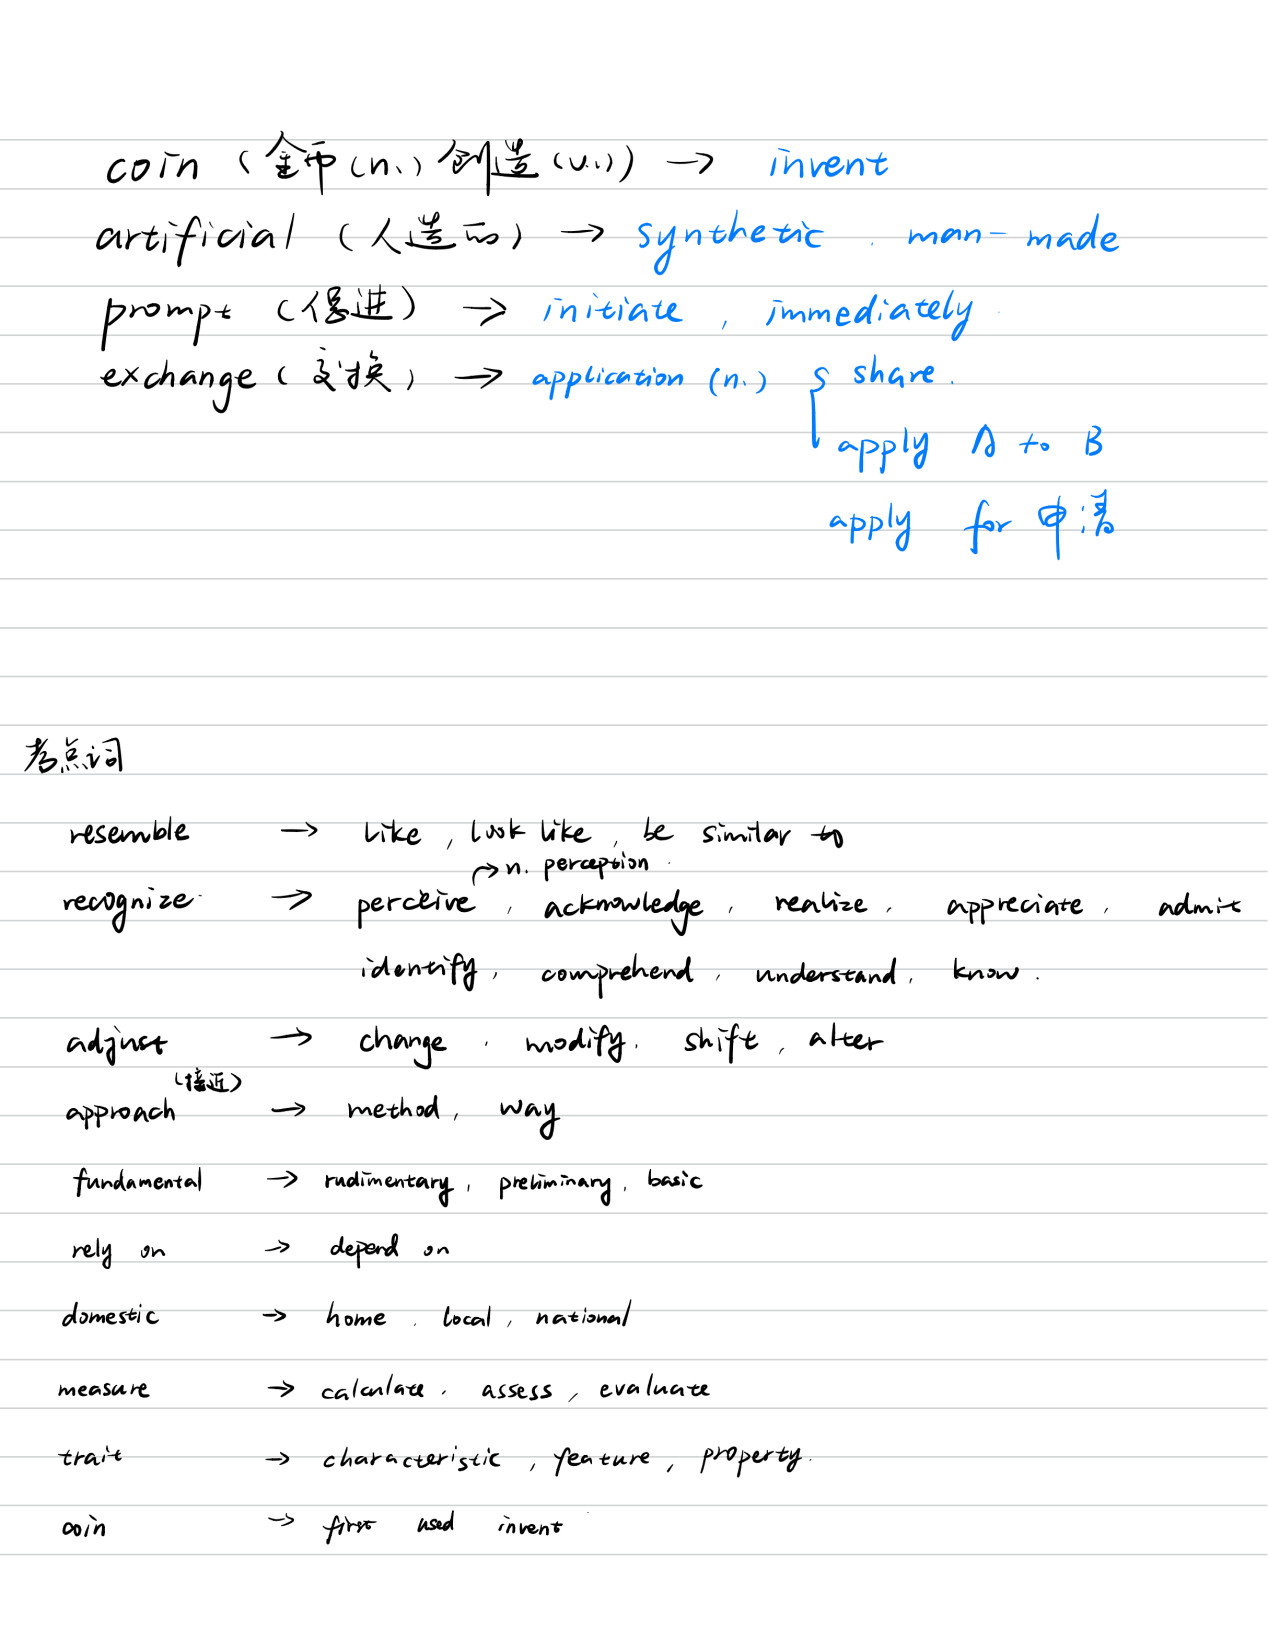 coin (金币(n.) 创造(v.)) → invent
artificial (人造的) → synthetic . man-made
prompt (促进) → initiate , immediately
exchange (交换) → application (n.) share .
apply A to B
apply for 申请
考点词
resemble → like , look like , be similar to
→ n. perception .
recognize → perceive , acknowledge , realize , appreciate , admit
identify , comprehend , understand , know .
adjust → change , modify . shift , alter
(接近)
approach → method , way
fundamental → rudimentary , preliminary , basic
rely on → depend on
domestic → home . local , national
measure → calculate . assess , evaluate
trait → characteristic , feature , property .
coin → first used invent